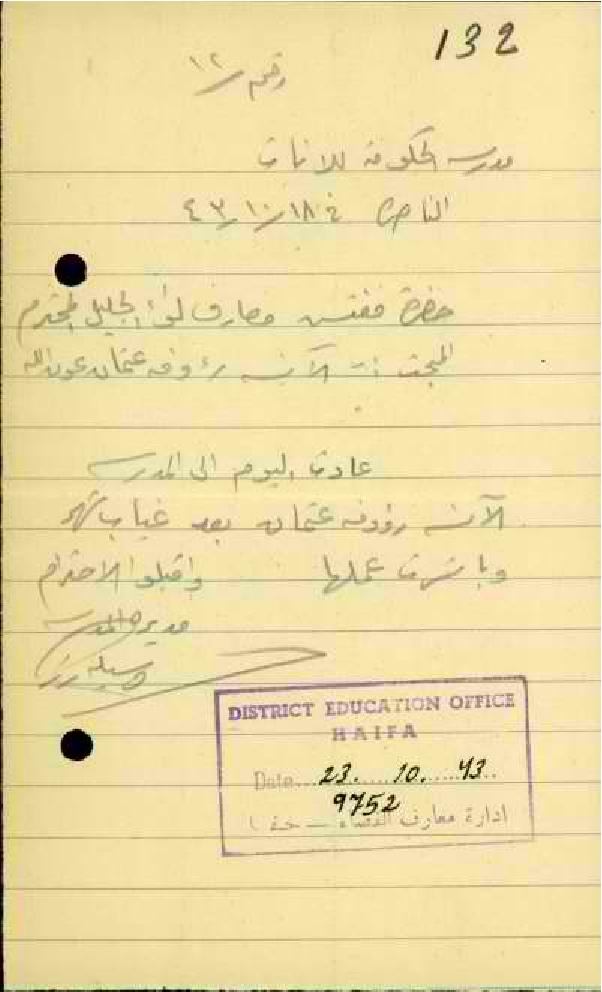 132
رقم / ١٢
مدرسة الحكومة للاناث
الناصرة في ١٨/١٠/٤٣
حضرة مفتش معارف لواء الجليل المحترم
المبحث :- الآنسه رؤوفه عثمان عون الله
عادت اليوم الى المدرسه
الآنسه رؤوفه عثمان بعد غياب شهر
وباشرت عملها واقبلوا الاحترام
مديرة المدرسه
وسيله
DISTRICT EDUCATION OFFICE
HAIFA
Date... 23. .... 10. .... 43..
9752
ادارة معارف القضاء — حيفا